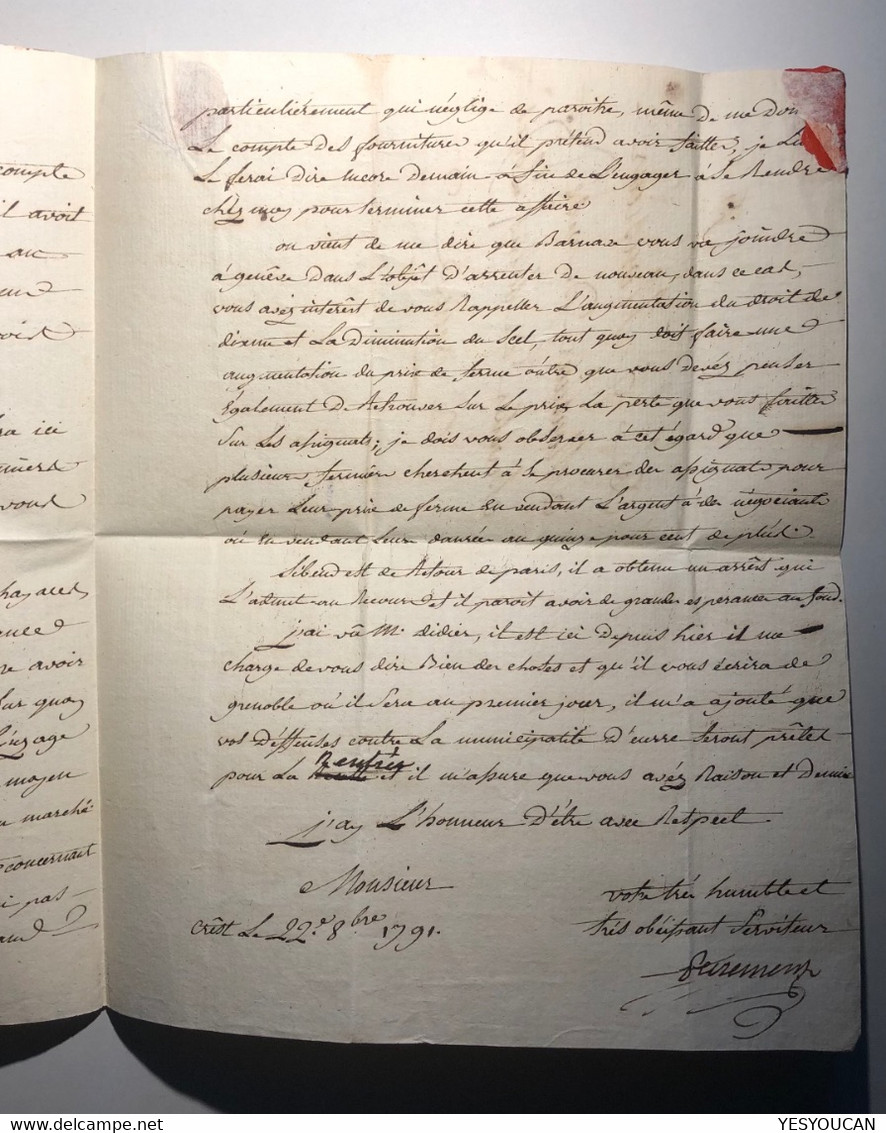 compte
il avoit
au
ra ici
vous
avoir
sur quoy
L'uzage
moyen
marché
concernant
pas
particulierement qui néglige de paroitre, même de me don
Le compte des fournitures qu'il prétend avoir faittes, je Lui
Le ferai dire encore demain à fin de L'engager à se Rendre
chéz moy pour terminer cette affaire
on vient de me dire que Barnave vous va joindre
à genêve dans L'objèt d'arrenter de nouveau, dans ce cas,
vous avéz intérêt de vous Rappeller L'augmentation du droit de
dixme et La Diminution du Scel, tout quoy doit faire une
augmentation du prix de ferme outre que vous devéz penser
également de Retrouver sur Le prix La perte que vous faittes
sur Les assignats; je dois vous observer à cet égard que
plusieurs fermiers cherchent à se procurer des assignats pour
payer Leur prix de ferme en vendant L'argent à des négociants
ou en vendant Leurs danrées au quinze pour cent de plus.
est de Retour de paris, il a obtenu un arrêts qui
L'admet au Recours et il paroit avoir de grandes esperances au fond.
j'ai vû Mr didier, il est ici depuis hier il me
charge de vous dire Bien des choses et qu'il vous écrira de
grenoble où il sera au premier jour, il m'a ajouté que
vos deffenses contre La municipalité d'eurre seront prêtes
pour La Rentrée et il m'assure que vous avéz Raison et demie
j'ay L'honneur d'être avec Respect
Monsieur
votre très humble et
très obéissant serviteur
Crêst Le 22e. 8bre 1791.
YESYOUCAN